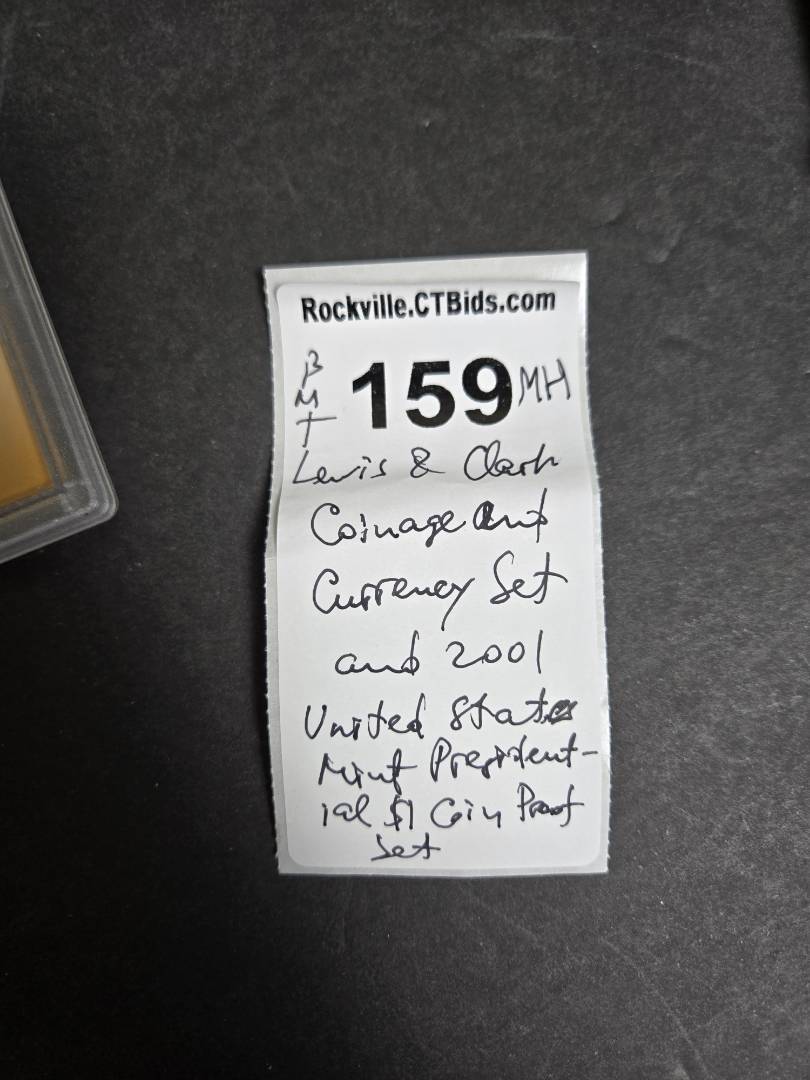 Rockville.CTBids.com
BMT 159 MH
Lewis & Clark
Coinage and
Currency Set
and 2001
United States
Mint President-
ial $1 Coin Proof
Set